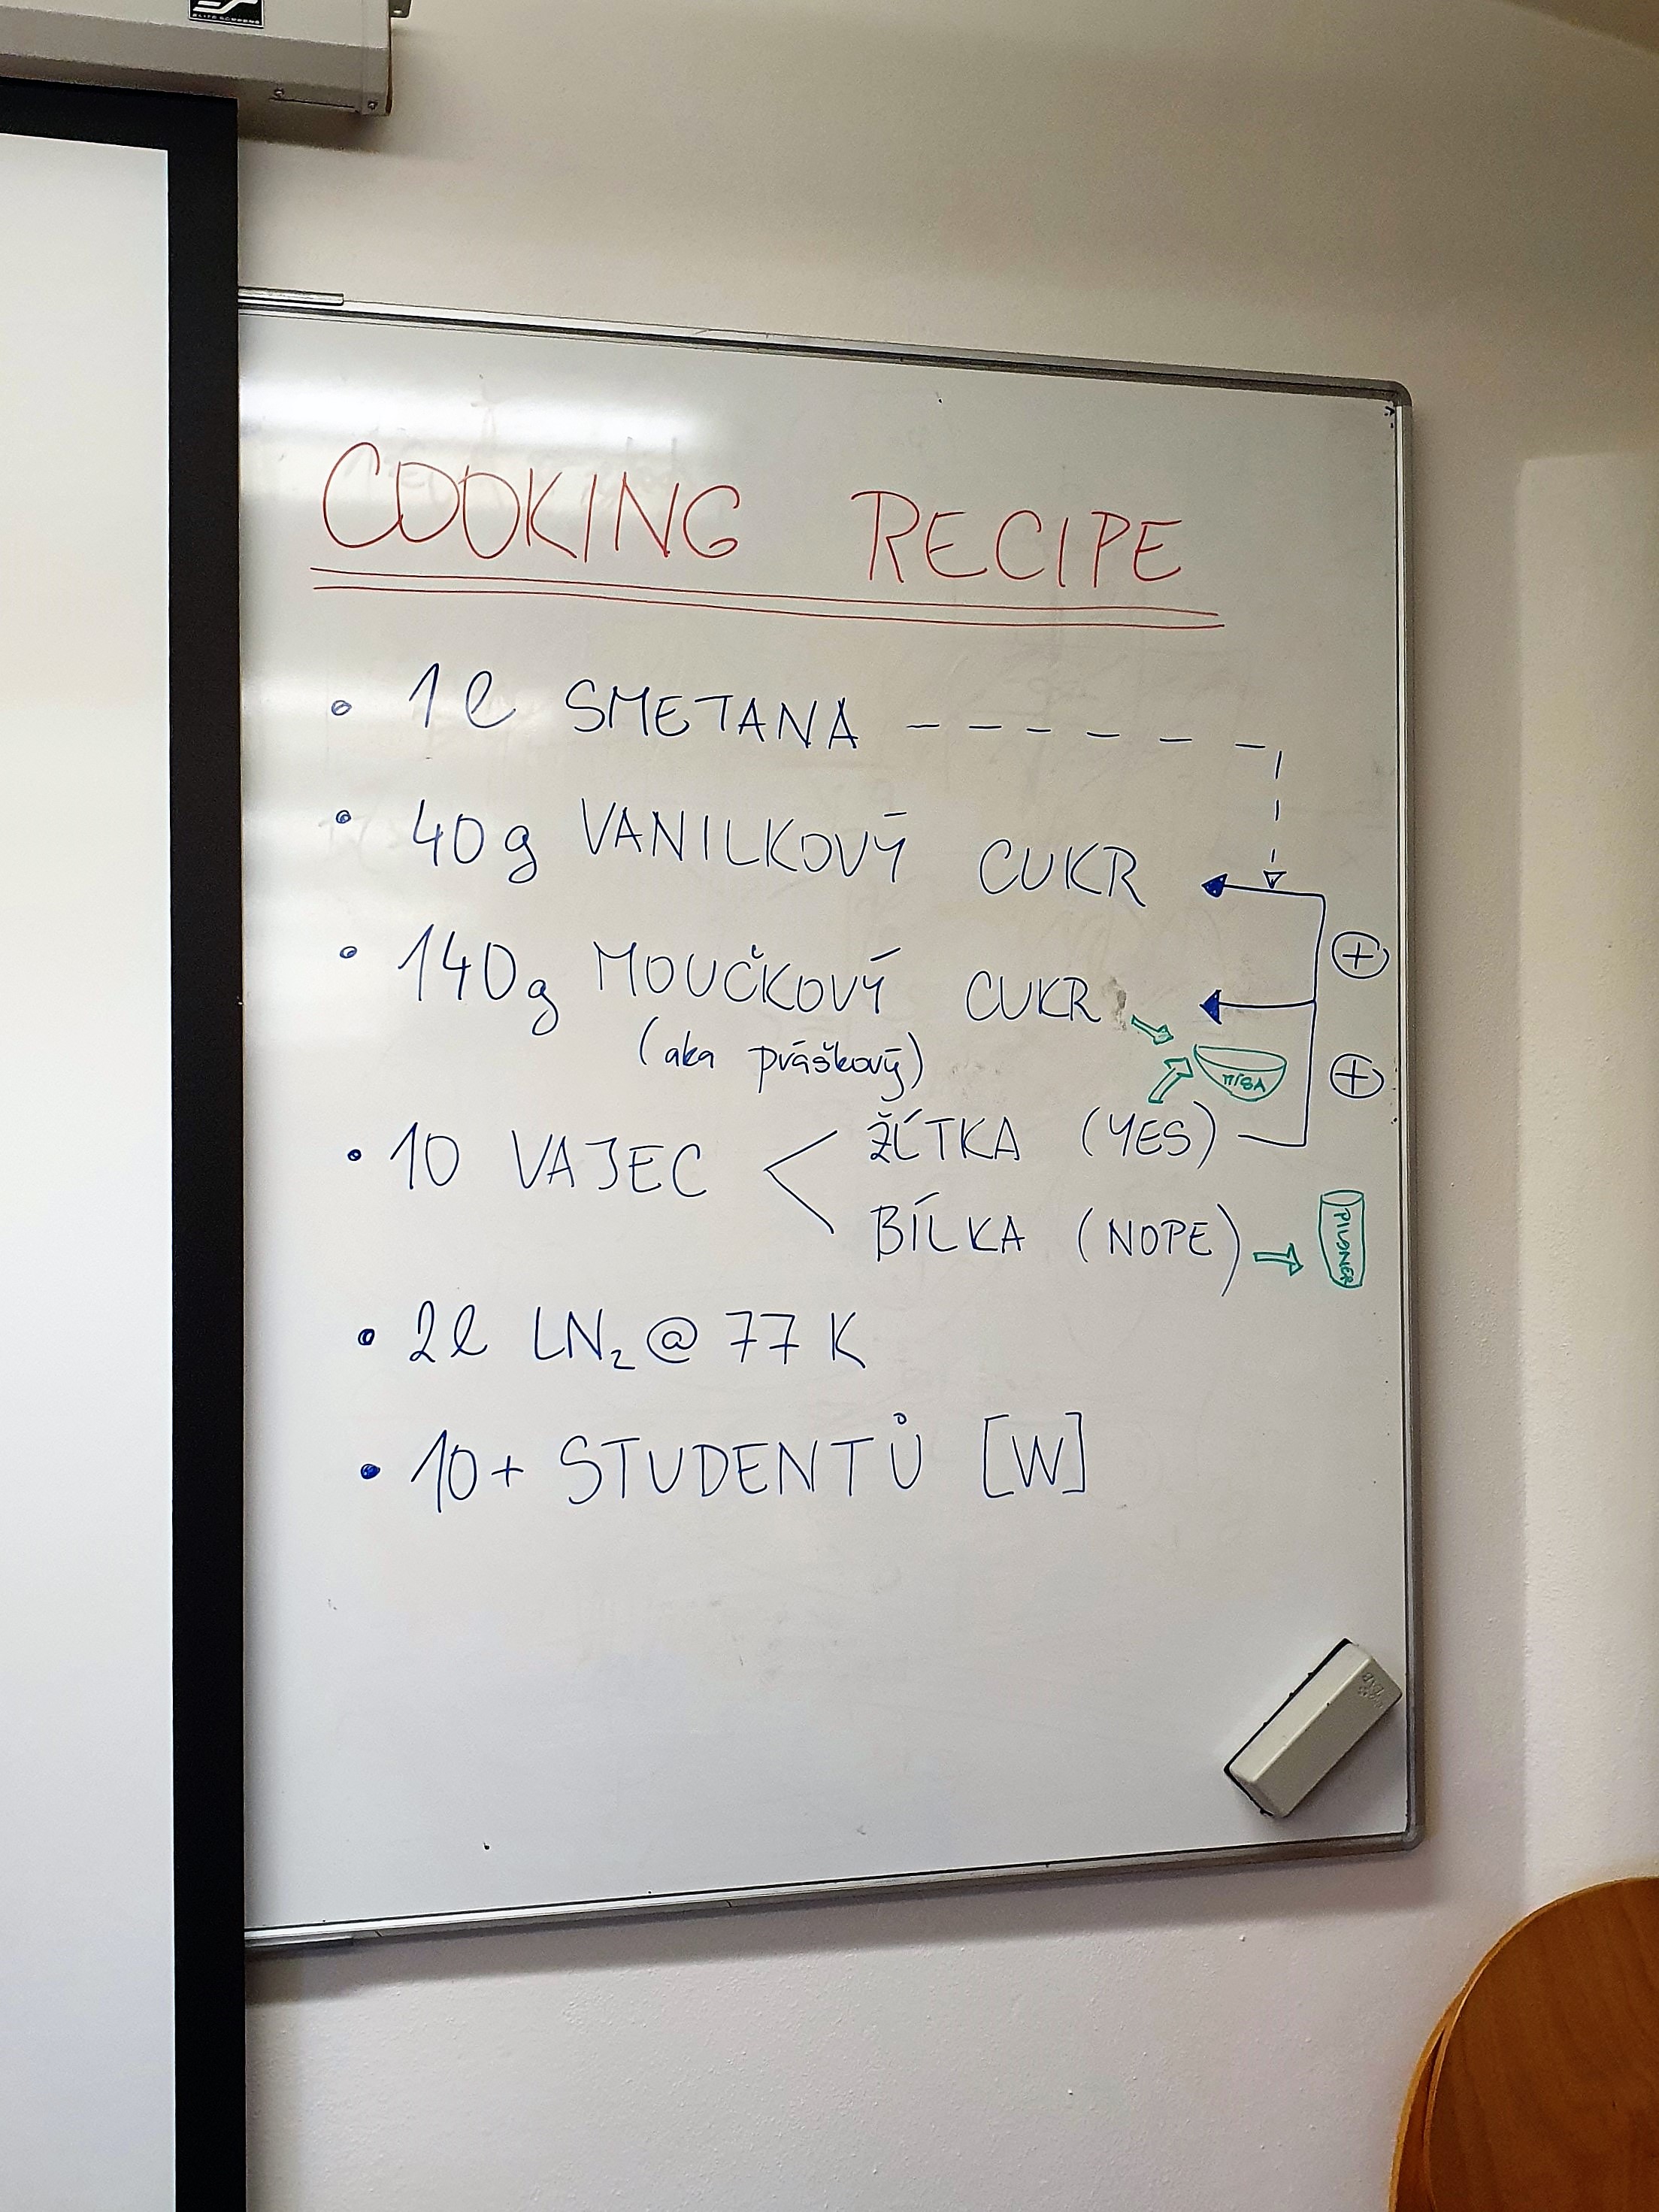 ELITE SCREENS
COOKING RECIPE
• 1 l SMETANA
• 40 g VANILKOVÝ CUKR
• 140 g MOUČKOVÝ CUKR
(aka práškový)
MÍSA
• 10 VAJEC < ŽĹTKA (YES)
BÍLKA (NOPE) → PILSNER
• 2 l LN₂ @ 77 K
• 10+ STUDENTŮ [W]